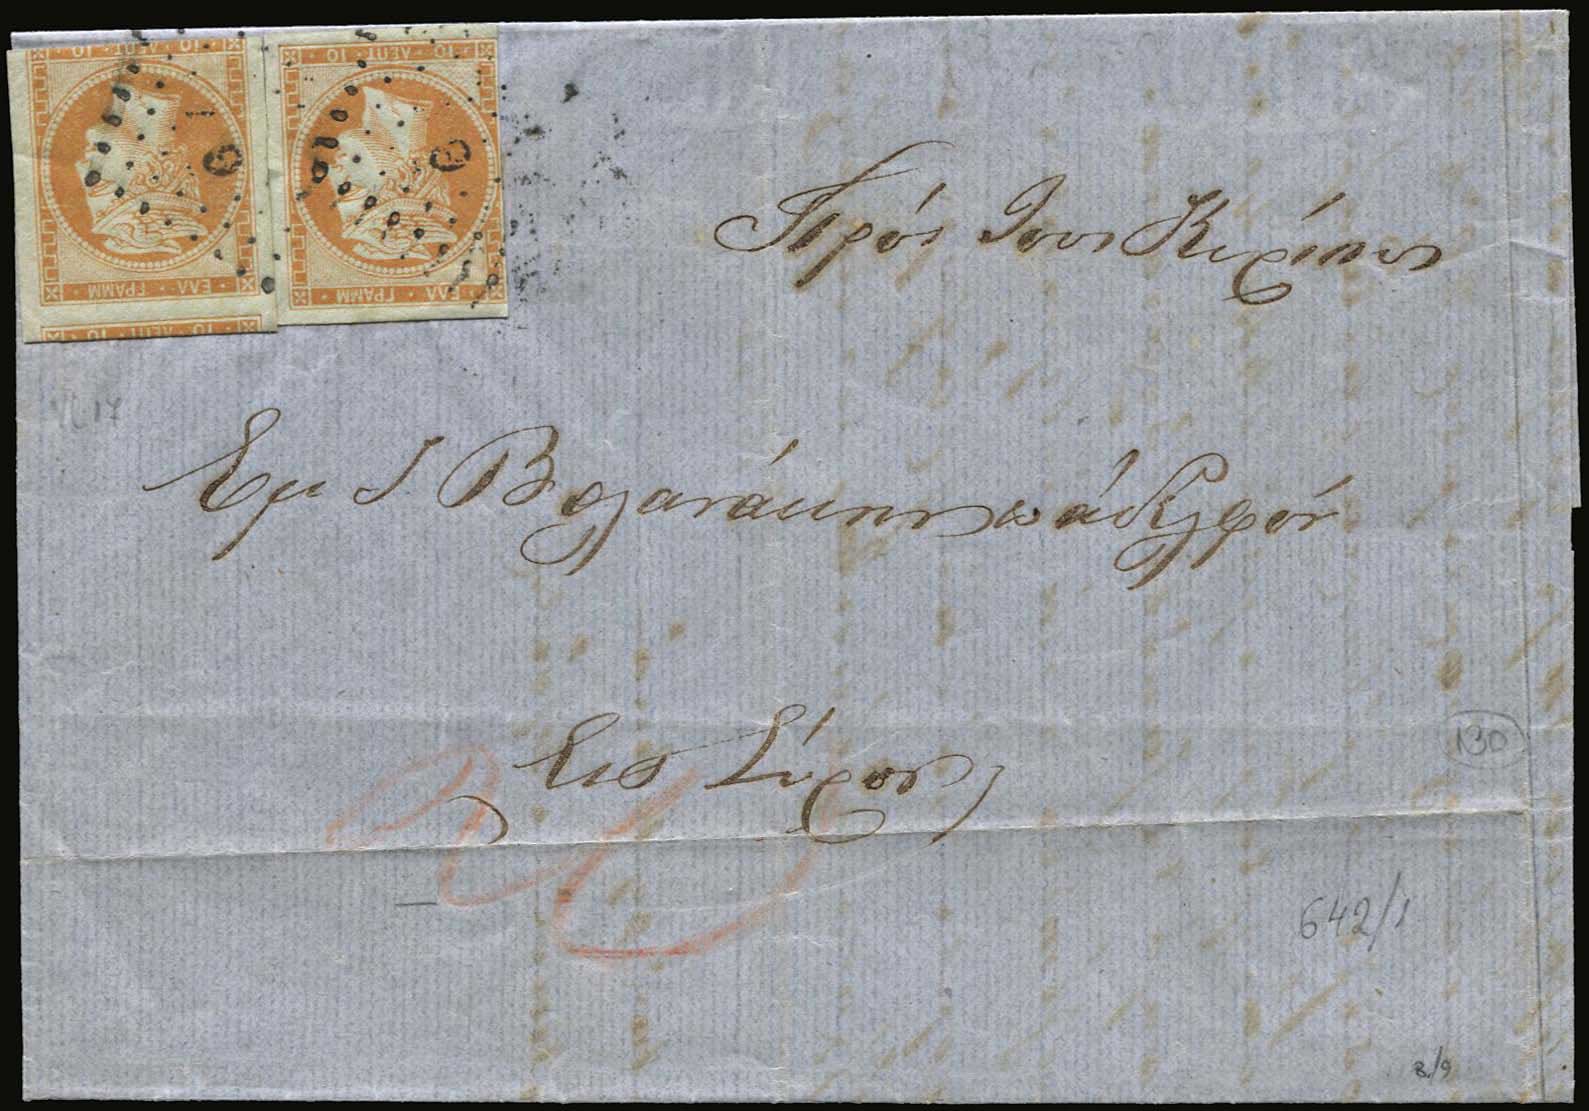 10 · ΛΕΠΤ · 10
10 · ΛΕΠΤ · 10
ΕΛΛ · ΓΡΑΜΜ
ΕΛΛ · ΓΡΑΜΜ
10 · ΛΕΠΤ · 10
9
9
Πρός Τους Κυρίους
Εμ Ι Βολανάκην κ αδελφόν
Εις Σύρον
20
17
130
642/1
8/9